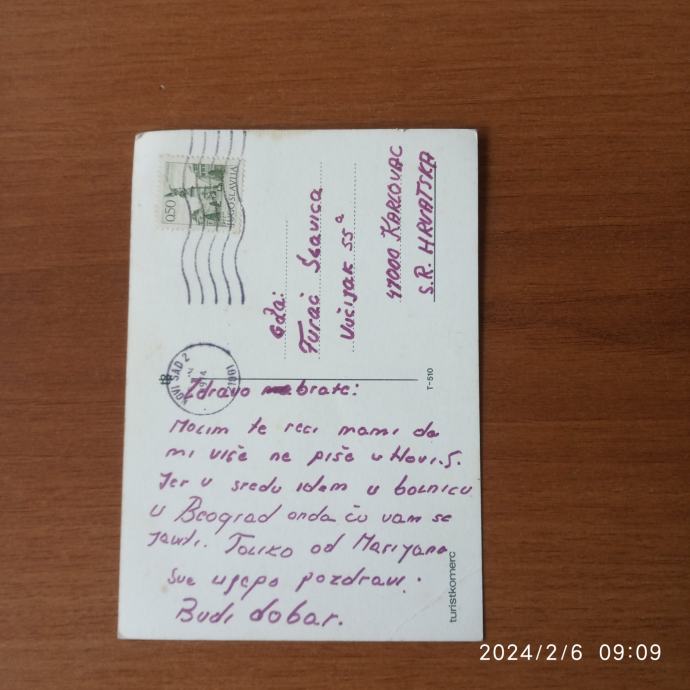 0.50
JUGOSLAVIJA
Gđa:
Furač Slavica
Vučijak 55a
47000 KARLOVAC
S.R. HRVATSKA
NOVI SAD 2
21001
T-510
Zdravo brate:
Molim te reci mami da
mi više ne piše u Novi.S.
Jer u sredu idem u bolnicu
u Beograd onda ću vam se
javiti. Toliko od Marijana
Sve ujepo pozdravi.
Budi dobar.
turistkomerc
2024/2/6 09:09